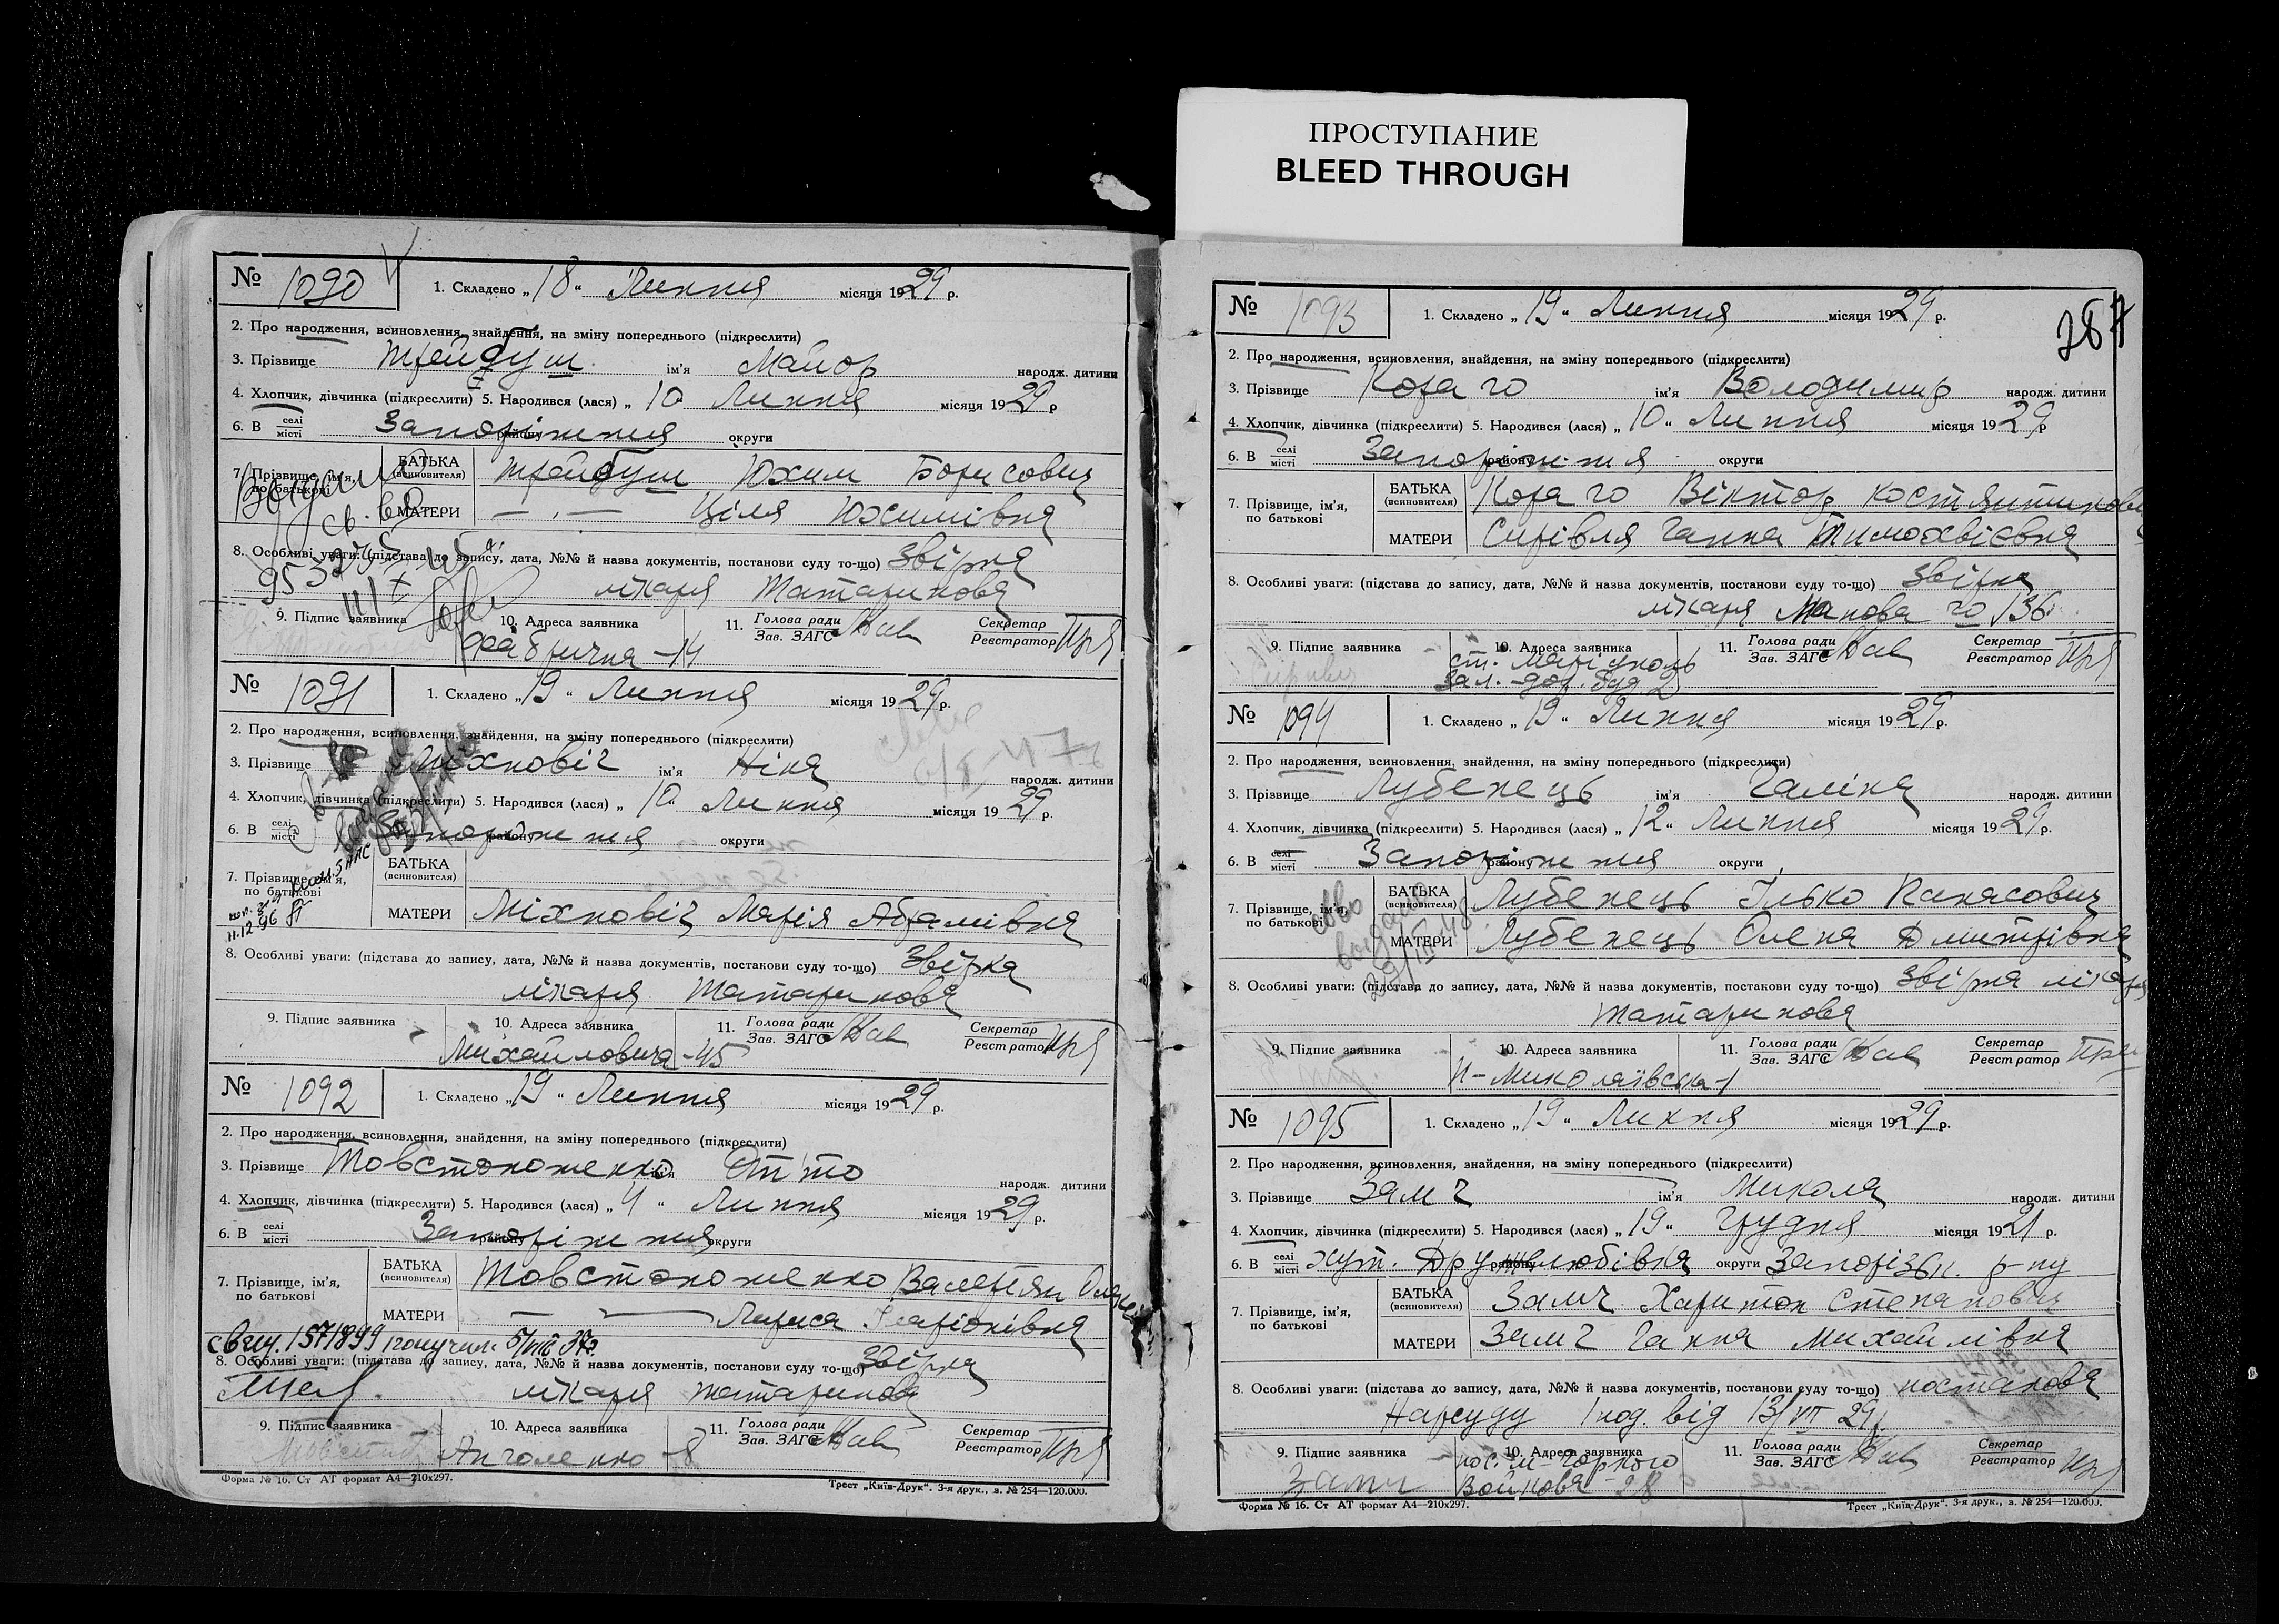 ПРОСТУПАНИЕ
BLEED THROUGH
№ 1090 1. Складено „18“ Липня місяця 1929 р.
2. Про народження, всиновлення, знайдення, на зміну попереднього (підкреслити)
3. Прізвище Трейбуш ім'я Майор народж. дитини
4. Хлопчик, дівчинка (підкреслити) 5. Народився (лася) „10 Липня місяця 1929 р
6. В селі місті Запоріжжя району округи
7. Прізвище, ім'я, по батькові БАТЬКА (всиновителя) Трейбуш Юхим Борисович
МАТЕРИ — „ — Ціля Юхимівна
8. Особливі уваги: (підстава до запису, дата, №№ й назва документів, постанови суду то-що) Звірка
лікаря Татаринова
9. Підпис заявника 10. Адреса заявника 11. Голова ради Зав. ЗАГС Секретар Реєстратор
Фабрична-14
№ 1091 1. Складено „19“ Липня місяця 1929 р.
2. Про народження, всиновлення, знайдення, на зміну попереднього (підкреслити)
3. Прізвище Міхновіч ім'я Ніна народж. дитини
4. Хлопчик, дівчинка (підкреслити) 5. Народився (лася) „10 Липня місяця 1929 р.
6. В селі місті Запоріжжя району округи
7. Прізвище, ім'я, по батькові БАТЬКА (всиновителя)
МАТЕРИ Міхновіч Марія Абрамівна
8. Особливі уваги: (підстава до запису, дата, №№ й назва документів, постакови суду то-що) Звірка
лікаря Татаринова
9. Підпис заявника 10. Адреса заявника 11. Голова ради Зав. ЗАГС Секретар Реєстратор
Михайловича-45
№ 1092 1. Складено „19“ Липня місяця 1929 р.
2. Про народження, всиновлення, знайдення, на зміну попереднього (підкреслити)
3. Прізвище Товстоноженко ім'я От'то народж. дитини
4. Хлопчик, дівчинка (підкреслити) 5. Народився (лася) „4“ Липня місяця 1929 р.
6. В селі місті Запоріжжя району округи
7. Прізвище, ім'я, по батькові БАТЬКА (всиновителя) Товстоноженко Валеріян
МАТЕРИ — Лариса Іларіонівна
свид. 157899 получил 5/VIII 37г.
8. Особливі уваги: (підстава до запису, дата, №№ й назва документів, постанови суду то-що) Звірка
лікаря Татаринова
9. Підпис заявника 10. Адреса заявника 11. Голова ради Зав. ЗАГС Секретар Реєстратор
Анголенко-8
Форма № 16. Ст АТ формат А4—210x297. Трест „Київ-Друк“. 3-я друк., з. № 254—120.000.
№ 1093 1. Складено „19“ Липня місяця 1929 р.
2. Про народження, всиновлення, знайдення, на зміну попереднього (підкреслити)
3. Прізвище Кораго ім'я Володимир народж. дитини
4. Хлопчик, дівчинка (підкреслити) 5. Народився (лася) „10“ Липня місяця 1929 р
6. В селі місті Запоріжжя району округи
7. Прізвище, ім'я, по батькові БАТЬКА (всиновителя) Кораго Віктор
МАТЕРИ Ганна Тимохвієвна
8. Особливі уваги: (підстава до запису, дата, №№ й назва документів, постанови суду то-що) Звірка
лікаря 136
9. Підпис заявника 10. Адреса заявника 11. Голова ради Зав. ЗАГС Секретар Реєстратор
ст. Маріуполь
Зал.-дор. буд 2
№ 1094 1. Складено „19“ Липня місяця 1929 р.
2. Про народження, всиновлення, знайдення, на зміну попереднього (підкреслити)
3. Прізвище Лубенець ім'я Галіна народж. дитини
4. Хлопчик, дівчинка (підкреслити) 5. Народився (лася) „12“ Липня місяця 1929 р.
6. В селі місті Запоріжжя району округи
7. Прізвище, ім'я, по батькові БАТЬКА (всиновителя) Лубенець Ілько Панасович
МАТЕРИ Лубенець Олена Дмитрівна
8. Особливі уваги: (підстава до запису, дата, №№ й назва документів, постакови суду то-що) Звірка лікаря
Татаринова
9. Підпис заявника 10. Адреса заявника 11. Голова ради Зав. ЗАГС Секретар Реєстратор
Н-Миколаївська-1
№ 1095 1. Складено „19“ Липня місяця 1929 р.
2. Про народження, всиновлення, знайдення, на зміну попереднього (підкреслити)
3. Прізвище Замч ім'я Микола народж. дитини
4. Хлопчик, дівчинка (підкреслити) 5. Народився (лася) „19“ Грудня місяця 1921 р.
6. В селі місті хут. Дружелюбівка району округи Запорізьк. р-ну
7. Прізвище, ім'я, по батькові БАТЬКА (всиновителя) Замч Харитон Степанович
МАТЕРИ Замч Ганна Михайлівна
8. Особливі уваги: (підстава до запису, дата, №№ й назва документів, постанови суду то-що) постанова
Нарсуду 1 від 13/VII 29р.
9. Підпис заявника 10. Адреса заявника 11. Голова ради Зав. ЗАГС Секретар Реєстратор
Замч пос. М-Горького
Войкова-28
Форма № 16. Ст АТ формат А4—210x297. Трест „Київ-Друк“. 3-я друк., з. № 254—120.000.